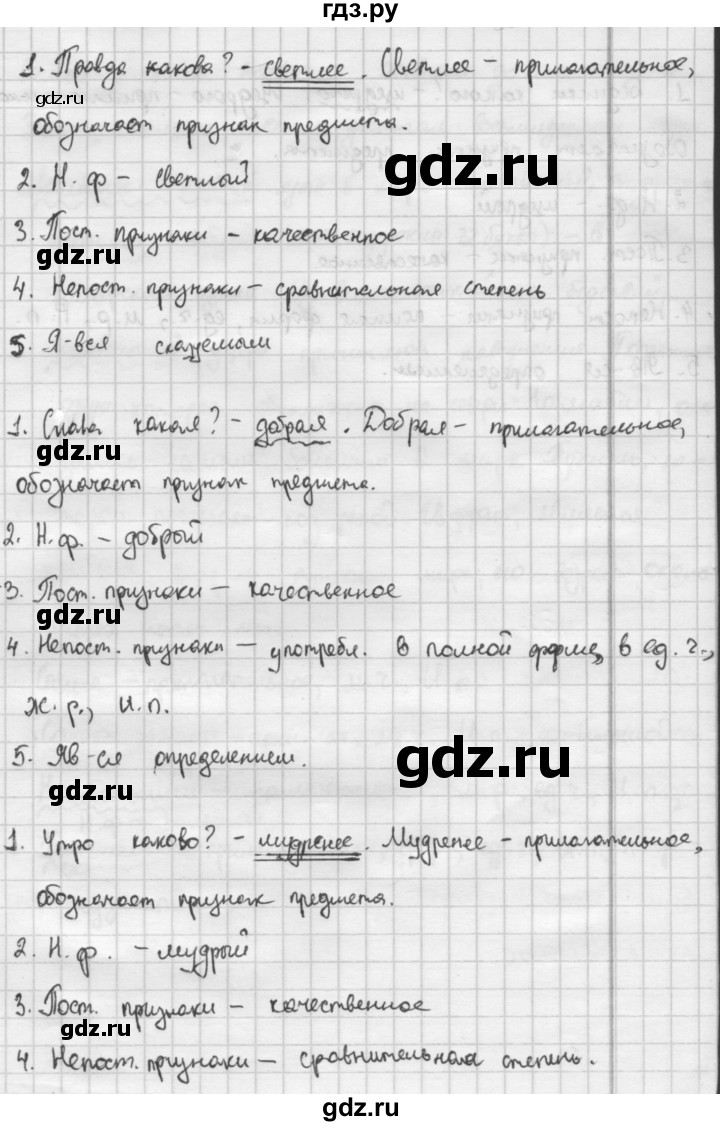 гдз.ру
1. Правда какова? - светлее. Светлее - прилагательное,
gdz.ru
обозначает признак предмета.
gdz.ru
2. Н. ф - светлый
3. Пост. признаки - качественное
gdz.ru
4. Непост. признаки - сравнительная степень
5. Я-вся сказуемым
1. Слава какая? - добрая. Добрая - прилагательное,
gdz.ru
обозначает признак предмета.
2. Н. ф. - добрый
3. Пост. признаки - качественное
gdz.ru
4. Непост. признаки - употребл. в полной форме, в ед. ч.,
ж. р., и.п.
5. Яв-ся определением.
gdz.ru
gdz.ru
1. Утро каково? - мудренее. Мудренее - прилагательное,
обозначает признак предмета.
2. Н. ф. - мудрый
3. Пост. признаки - качественное
gdz.ru
4. Непост. признаки - сравнительная степень.
gdz.ru